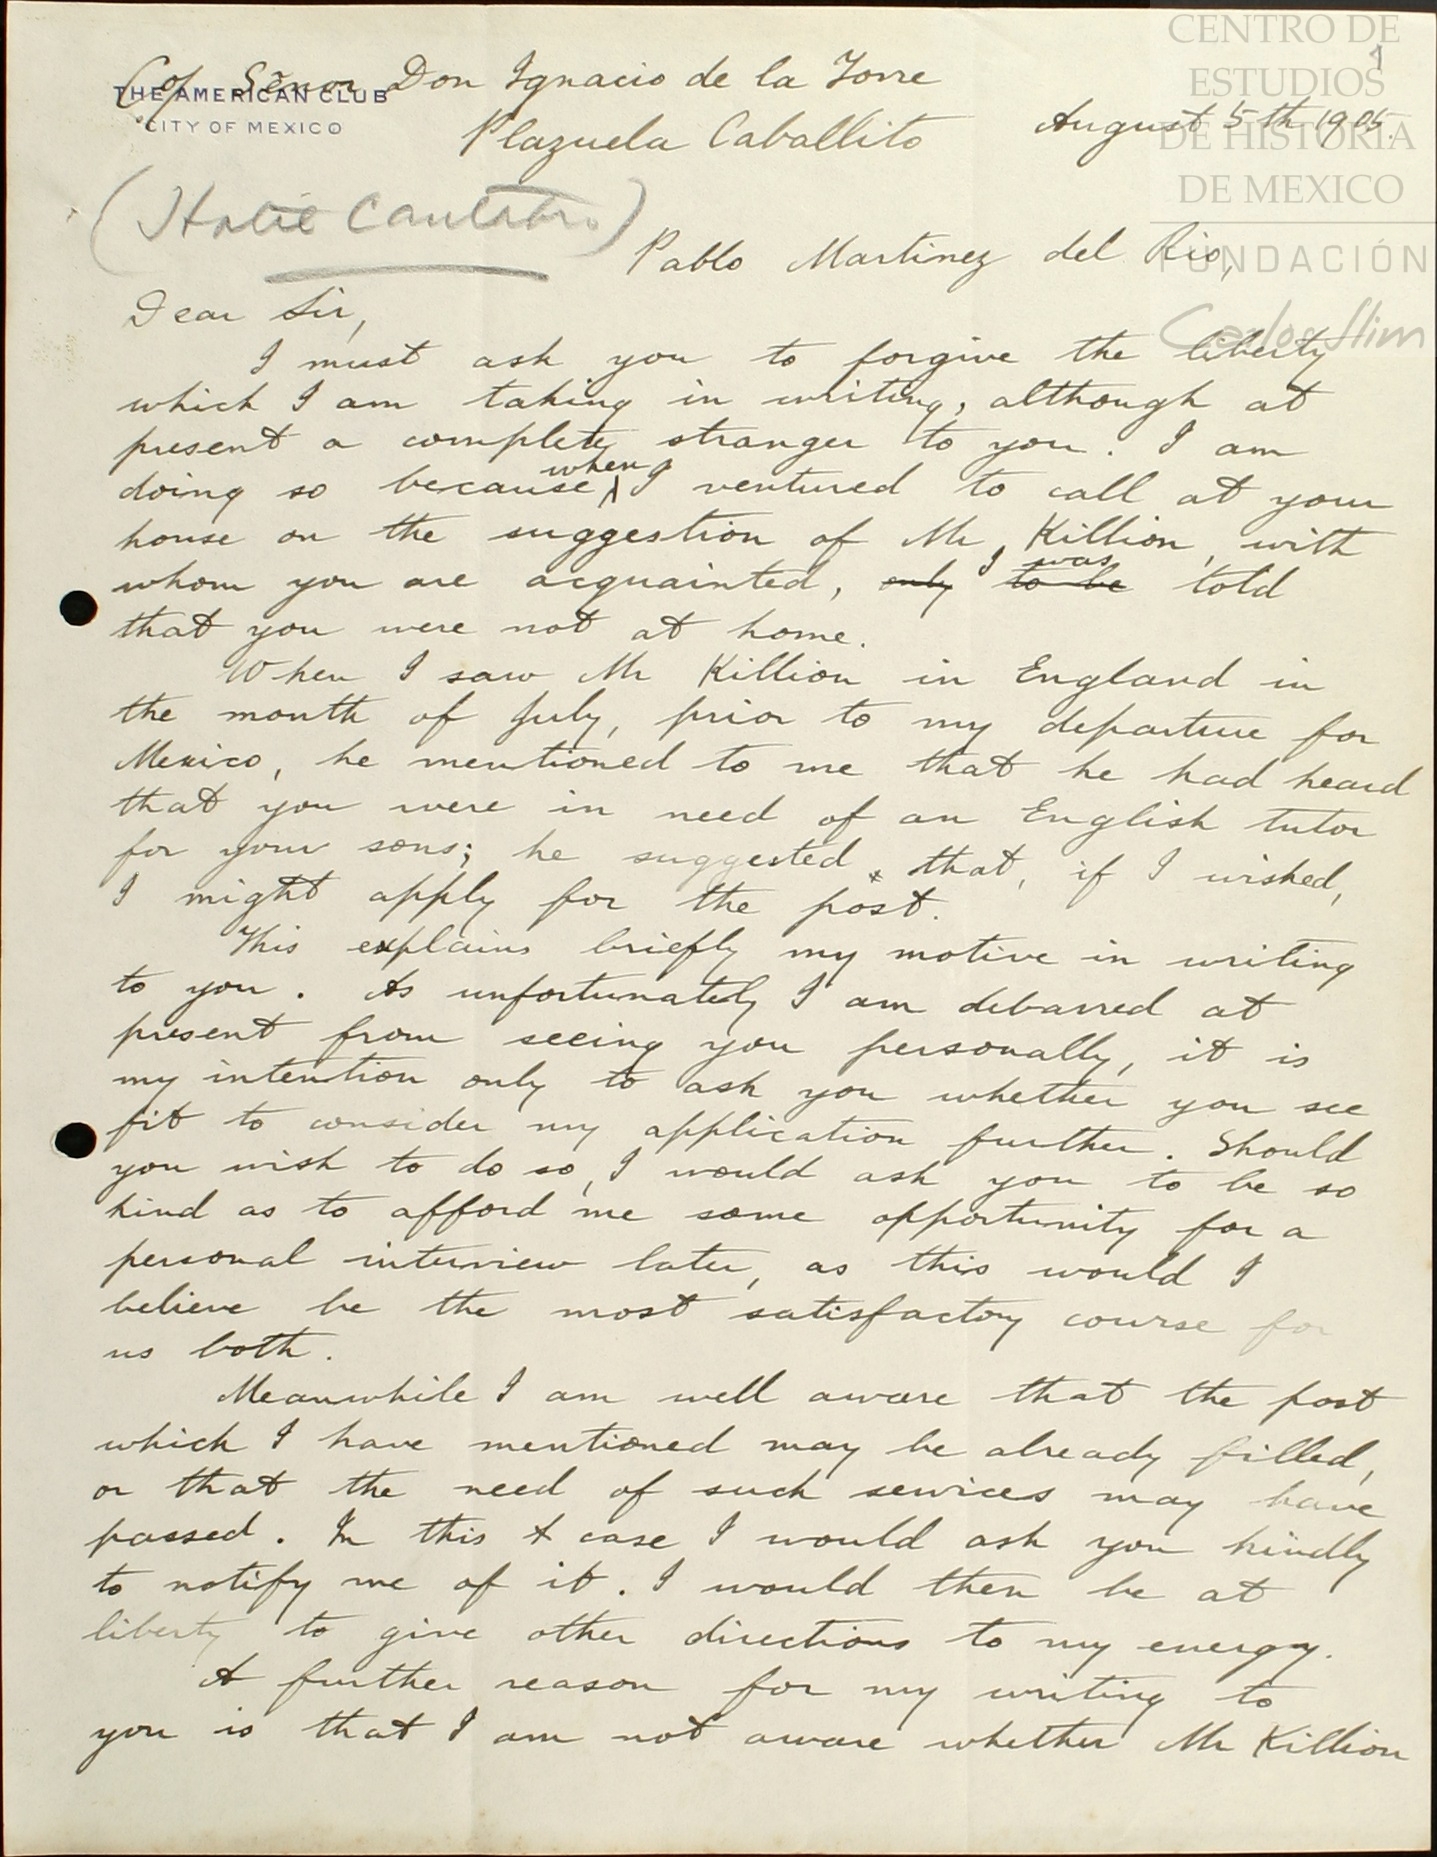 THE AMERICAN CLUB
CITY OF MEXICO
c/o Señor Don Ignacio de la Torre
Plazuela Caballito
August 5th 1905.
1
CENTRO DE
ESTUDIOS
DE HISTORIA
DE MEXICO
FUNDACIÓN
Carlos Slim
Pablo Martinez del Rio,
Dear Sir,
I must ask you to forgive the liberty
which I am taking in writing, although at
present a complete stranger to you. I am
doing so because, when I ventured to call at your
house on the suggestion of Mr Killion, with
whom you are acquainted, only I was to be told
that you were not at home.
When I saw Mr Killion in England in
the month of July, prior to my departure for
Mexico, he mentioned to me that he had heard
that you were in need of an English tutor
for your sons; he suggested that, if I wished,
I might apply for the post.
This explains briefly my motive in writing
to you. As unfortunately I am debarred at
present from seeing you personally, it is
my intention only to ask you whether you see
fit to consider my application further. Should
you wish to do so, I would ask you to be so
kind as to afford me some opportunity for a
personal interview later, as this would I
believe be the most satisfactory course for
us both.
Meanwhile I am well aware that the post
which I have mentioned may be already filled,
or that the need of such services may have
passed. In this case I would ask you kindly
to notify me of it. I would then be at
liberty to give other directions to my energy.
A further reason for my writing to
you is that I am not aware whether Mr Killion